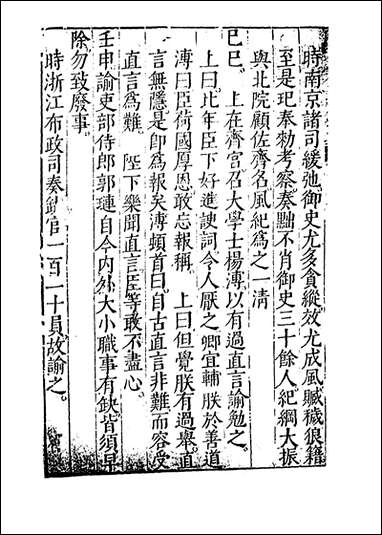 時南京諸司緩弛御史尤多貪縱效尤成風贓穢狼籍
至是玘奉勑考察奏黜不肖御史三十餘人紀綱大振
與北院顧佐齊名風紀爲之一清
己巳。上在齊宮召大學士楊溥以有過直言諭勉之。
上曰比年臣下好進諛詞令人厭之卿宜輔朕於善道
溥曰臣荷國厚恩敢忘報稱。上曰但覺朕有過舉直
言無隱是卽爲報矣溥頓首曰自古直言非難而容受
直言爲難。陛下樂聞直言臣等敢不盡心。
壬申諭吏部侍郎郭璡自今内外大小職事有缺皆須早
除勿致廢事。
時浙江布政司奏缺官一百一十員故諭之。